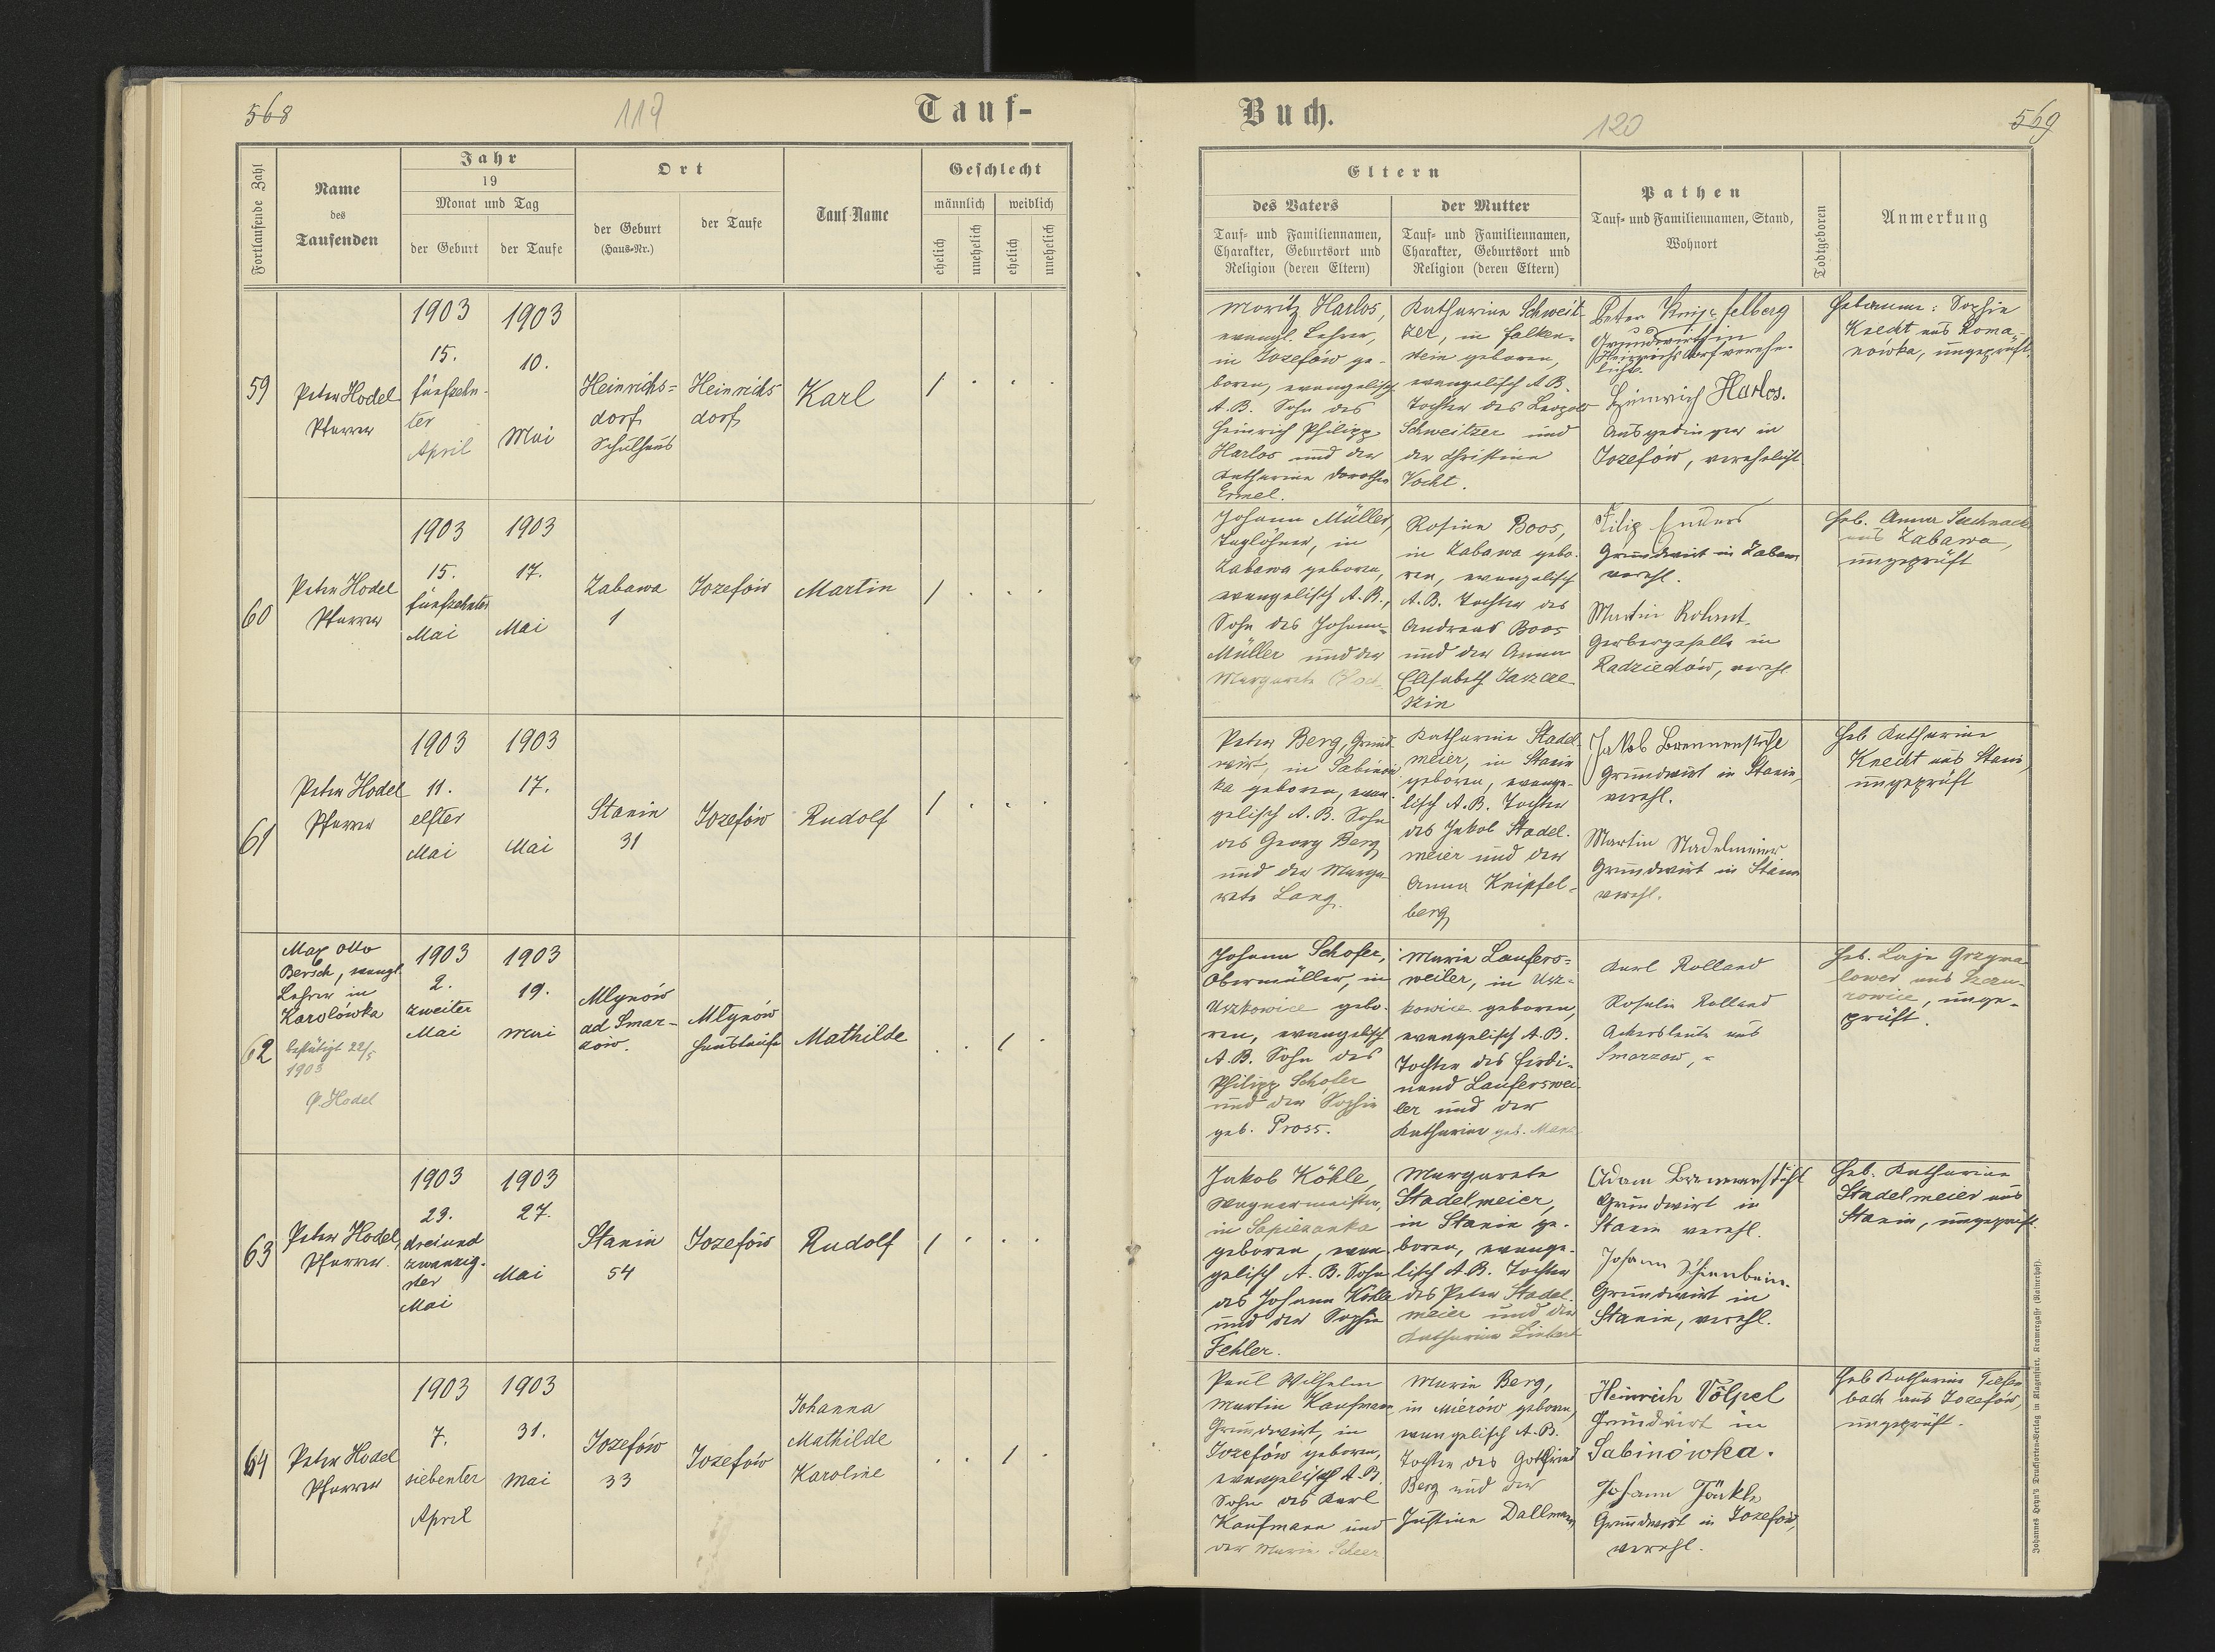 568
119
Tauf-
Fortlaufende Zahl
Name
des
Taufenden
Jahr
19
Monat und Tag
der Geburt
der Taufe
Ort
der Geburt
(Haus-Nr.)
der Taufe
Tauf-Name
Geschlecht
männlich
weiblich
ehelich
unehelich
ehelich
unehelich
59
Peter Hodel
Pfarrer
1903
15.
fünfzehn-
ter
April
1903
10.
Mai
Heinrichs=
dorf
Schulhaus
Heinrichs
dorf
Karl
1 . . .
60
Peter Hodel
Pfarrer
1903
15.
fünfzehnter
Mai
1903
17.
Mai
Zabawa
1
Jozefów
Martin
1 . . .
61
Peter Hodel
Pfarrer
1903
11.
elfter
Mai
1903
17.
Mai
Stanin
31
Jozefów
Rudolf
1 . . .
62
Max Otto
Bersch, evangl.
Lehrer in
Karolówka
bestätigt 22/5
1903
P. Hodel
1903
2.
zweiter
Mai
1903
19.
Mai
Mlynów
ad Smar-
zów.
Mlynów
Haustaufe
Mathilde
. . 1 .
63
Peter Hodel,
Pfarrer
1903
23.
dreiund
zwanzig-
ster
Mai
1903
27.
Mai
Stanin
54
Jozefów
Rudolf
1 . . .
64
Peter Hodel
Pfarrer
1903
7.
siebenter
April
1903
31.
Mai
Jozefów
33
Jozefów
Johanna
Mathilde
Karoline
. . 1 .
Buch.
120
569
Eltern
des Vaters
Tauf- und Familiennamen,
Charakter, Geburtsort und
Religion (deren Eltern)
der Mutter
Tauf- und Familiennamen,
Charakter, Geburtsort und
Religion (deren Eltern)
Pathen
Tauf- und Familiennamen, Stand,
Wohnort
Todtgeboren
Anmerkung
Moritz Harlos,
evangl. Lehrer,
in Jozefów ge-
boren, evangelisch
A.B. Sohn des
Heinrich Philipp
Harlos und der
Katharina Dorothea
Ermel.
Katharina Schweit-
zer, in Falken-
stein geboren,
evangelisch A.B.
Tochter des Leopold
Schweitzer und
der Christine
Vocht.
Peter Knipfelberg
Grundwirth in
Heinrichsdorf verehe-
licht.
Heinrich Harlos.
Ausgedinger in
Jozefów, verehelicht
Hebamme: Sophie
Knecht aus Roma-
nówka, ungeprüft.
Johann Müller,
Taglöhner, in
Zabawa geboren,
evangelisch A.B.,
Sohn des Johann
Müller und der
Margareta
Rosina Boos,
in Zabawa gebo-
ren, evangelisch
A.B. Tochter des
Andreas Boos
und der Anna
Elisabeth Jaszcze-
szin
Filip Enders
Grundwirt in Zabawa
verehl.
Martin
Gerbergeselle in
Radziechów, verehl.
Heb. Anna
aus Zabawa,
ungeprüft
Peter Berg, Grund-
wirt, in Sabinów-
ka geboren, evan-
gelisch A.B. Sohn
des Georg Berg
und der Marga-
rete Lang.
Katharina Stadel-
meier, in Stanin
geboren, evange-
lisch A.B. Tochter
des Jakob Stadel-
meier und der
Anna Knipfel-
berg
Jakob Brennenstuhl
Grundwirt in Stanin,
verehl.
Martin Stadelmeier
Grundwirt in Stanin
verehl.
Heb Katharina
Knecht aus Stanin,
ungeprüft
Johann Schofer,
Obermüller, in
Uszkowice gebo-
ren, evangelisch
A.B. Sohn des
Philipp Schofer
und der Sophie
geb. Pross.
Maria Laufers=
weiler, in Usz-
kowice geboren,
evangelisch A.B.
Tochter des Ferdi-
nand Lauferswei-
ler und der
Katharina geb.
Karl Rolland
Rosalie Rolland
Ackersleute aus
Smarzow,
Heb. Laje Grzyma-
lower aus
rowice, unge-
prüft.
Jakob Köhle,
Wagnermeister,
in Sapiezanka
geboren, evan-
gelisch A.B. Sohn
des Johann Köhle
und der Sophie
Fehler.
Margareta
Stadelmeier,
in Stanin ge-
boren, evange-
lisch A.B. Tochter
des Peter Stadel-
meier und der
Katharina
Adam Brennenstuhl
Grundwirt in
Stanin verehl.
Johann Schienbein.
Grundwirt in
Stanin, verehl.
Heb. Katharina
Stadelmeier aus
Stanin, ungeprüft.
Paul Wilhelm
Martin Kaufmann
Grundwirt, in
Jozefów geboren,
evangelisch A.B.
Sohn des Karl
Kaufmann und
der Maria Scheer
Maria Berg,
in Mierow geboren,
evangelisch A.B.
Tochter des Gottfried
Berg und der
Justine Dallmann
Heinrich Völpel
Grundwirt in
Sabinówka.
Johann Jäckle
Grundwirt in Jozefów,
verehl.
Heb Katharina Tiefen
bach aus Jozefów,
ungeprüft.
Johannes Heyn's Drucksorten-Verlag in Klagenfurt, Kramergasse (Rainerhof).